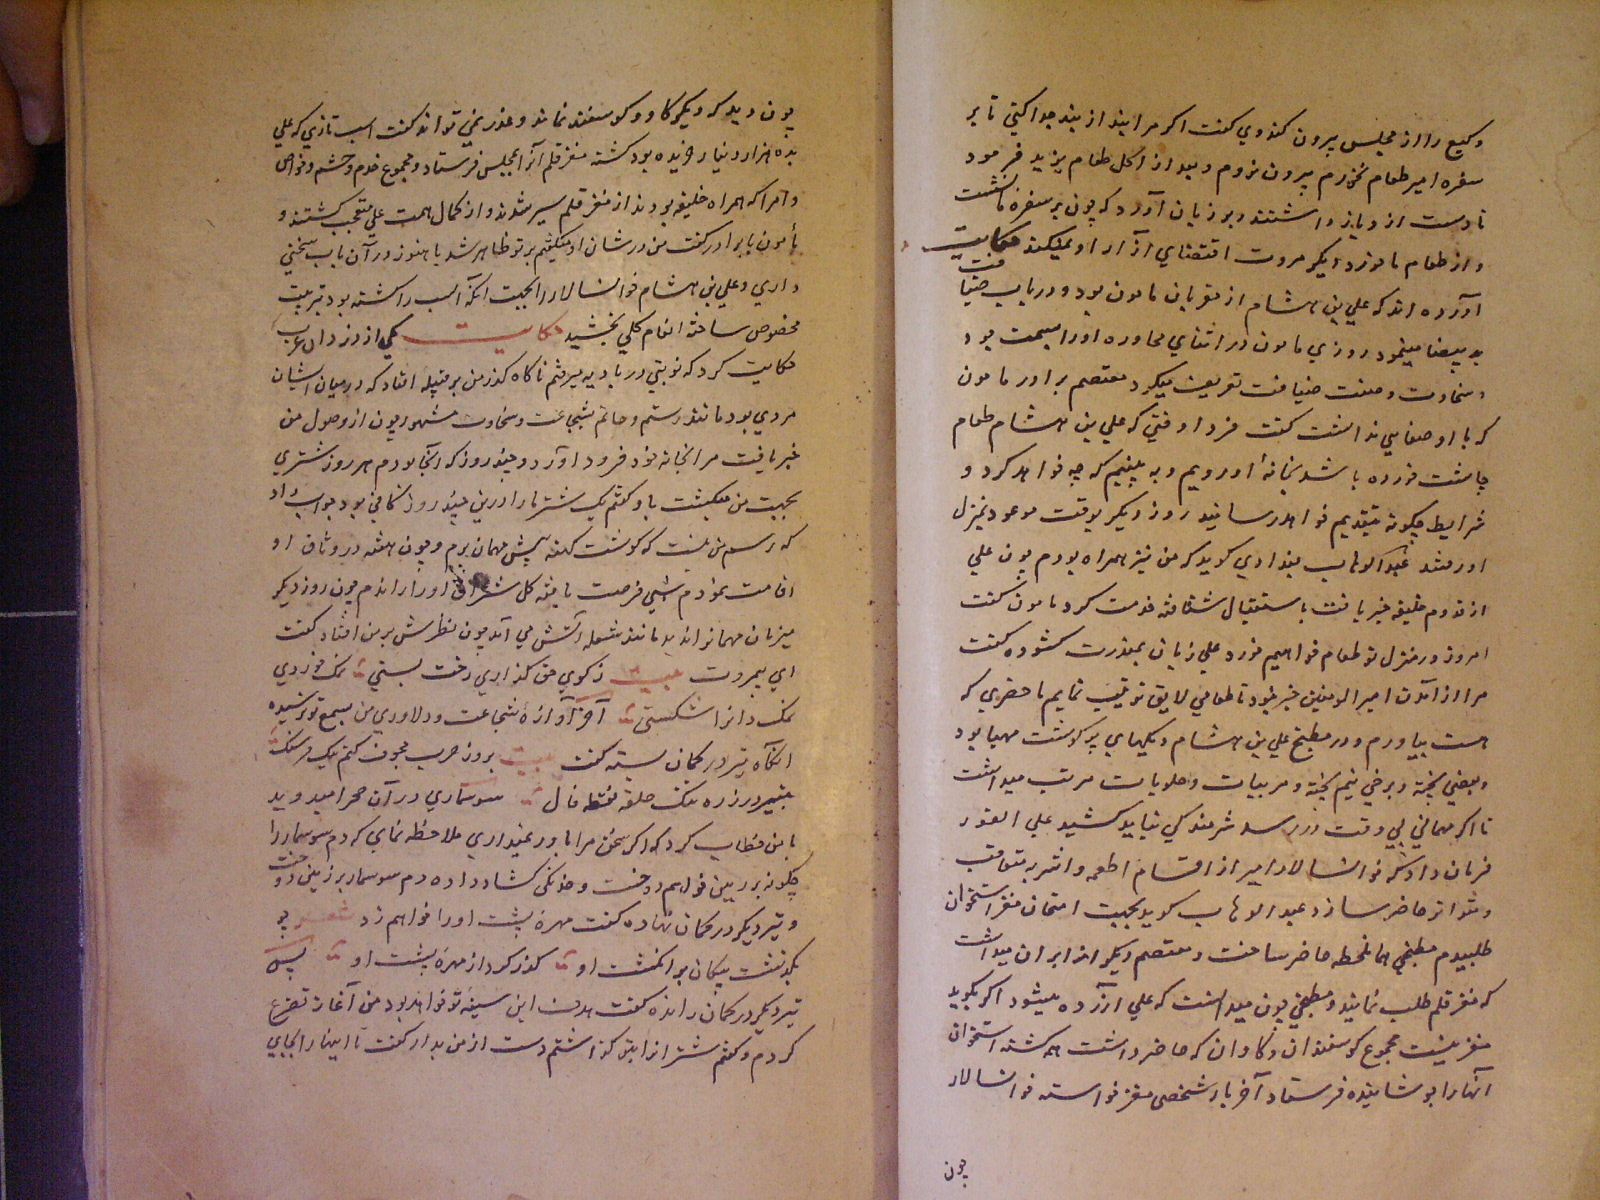 وکیع را از مجلس بیرون کند وی گفت اکر مرا بند از بند جدا کنی تا بر
سفره امیر طعام نخورم بیرون نروم و بعد از اکل طعام یزید فرمود
تا دست از وی باز داشتند و بر زبان آورد که چون بر سفرهٔ ما نشست
و از طعام ما خورد دیکر مروت اقتضای آزار او نمیکند حکایت
آورده اند که علی بن هشام از مقربان مامون بود و در باب ضیافت
ید بیضا مینمود روزی مامون در اثنای محاوره او را بسمت جود
و سخاوت و صفت ضیافت تعریف میکرد معتصم برادر مامون
که با او صفایی نداشت گفت فردا وقتی که علی بن هشام طعام
چاشت خورده باشد بخانهٔ او رویم و به بینیم که چه خواهد کرد و
شرایط چکونه بتقدیم خواهد رسانید روز دیکر بوقت موعود بمنزل
او رفتند عبد الوهاب بغدادی کوید که من نیز همراه بودم چون علی
از قدوم خلیفه خبر یافت باستقبال شتافته خدمت کرد مامون گفت
امروز در منزل تو طعام خواهیم خورد علی زبان بمعذرت کشوده گفت
مرا از آمدن امیر المومنین خبر نبود تا طعامی لایق ترتیب نمایم ما حضری که
هست بیاورم و در مطبخ علی بن هشام دیکهای پر کوشت مهیا بود
و بعضی پخته و برخی نیم پخته و مربیات و حلویات مرتب میداشت
تا اکر مهمانی بی وقت در رسد شرمندکی نباید کشید علی الفور
فرمان داد که خوانسالار امیر از اقسام اطعمه و اشربه متعاقب
و متواتر حاضر سازد عبد الوهاب کوید بجهت امتحان مغز استخوان
طلبیدم مطبخی همان لحظه حاضر ساخت و معتصم دیکرانرا بران میداشت
که مغز قلم طلب نمایند و مطبخی چون میدانست که علی آزرده میشود اکر بکوید
مغز نیست مجموع کوسفندان و کاوان که حاضر داشت همه کشته استخوان
آنها را جوشانیده فرستاد آخر بار شخصی مغز خواسته خوانسالار
چون
چون دید که دیکر کاو و کوسفند نماند و عذر نمی تواند گفت اسب تازی که علی
بده هزار دینار خریده بود کشته مغز قلم آنرا بمجلس فرستاد و مجموع خدم و حشم و خواص
و امرا که همراه خلیفه بودند از مغز قلم سیر شدند و از کمال همت علی متعجب کشتند و
مأمون با برادر گفت من در شان او میکفتم بر تو ظاهر شد یا هنوز در آن باب سخنی
داری و علی بن هشام خوانسالار را بجهت آنکه اسب را کشته بود بتربیت
مخصوص ساخته انعام کلی بخشید حکایت یکی از دزدان عرب
حکایت کرد که نوبتی در بادیه میرفتم ناکاه کذر من بر قبیلهٔ افتاد که در میان ایشان
مردی بود مانند رستم و حاتم بشجاعت و سخاوت مشهور چون از وصول من
خبر یافت مرا بخانه خود فرود آورد و چند روز که آنجا بودم هر روز شتری
بجهت من میکشت با وی کفتم یک شتر ما را درین چند روز کافی بود جواب داد
که رسم من نیست که کوشت کهنه پیش مهمان برم و چون هفته در وثاق او
اقامت نمودم شبی فرصت یافته کل شتران او را راندم چون روز دیکر
میزبان مهمانرا ندید مانند شعله آتش می آمد چون نظرش بر من افتاد گفت
ای بیمروت بیت ز کوی حق کذاری رخت بستی نمک خوردی
نمکدانرا شکستی آخر آوازهٔ شجاعت و دلاوری من بسمع تو نرسیده
انکاه تیر در کمان بسته گفت بیت بروز حرب مجون کنم یک فرسنک
بتیر در زره تنک حلقه نقطه خال سوسماری در آن صحرا میدوید
با من خطاب کرد که اکر سخن مرا باور نمیداری ملاحظه نمای که دم سوسمار را
چکونه بر زمین خواهم دوخت و خدنکی کشاد داده دم سوسمار بر زمین دوخت
و تیر دیکر در کمان نهاده گفت مهرهٔ پشت او را خواهم زد شعر چو
بکذشت پیکان بر انکشت او کذر کرد از مهره پشت او پس
تیر دیکر در کمان رانده گفت هدف این سینه تو خواهد بود من آغاز تضرع
کردم و کفتم شترانرا بتو کذاشتم دست از من بدار گفت تا اینها را بجای